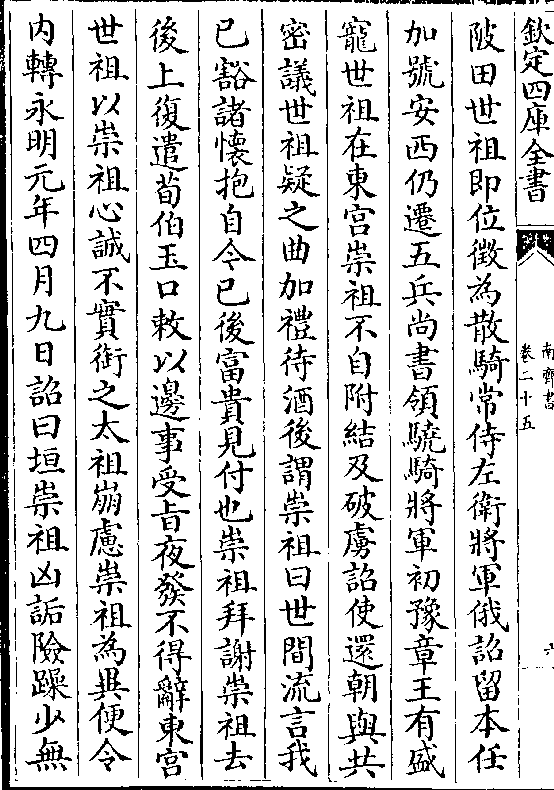 欽定四庫全書
南齊書
卷二十五
六
陂田世祖即位徵為散騎常侍左衛將軍俄詔留本任
加號安西仍遷五兵尚書領驍騎將軍初豫章王有盛
寵世祖在東宮崇祖不自附結及破虜詔使還朝與共
密議世祖疑之曲加禮待酒後謂崇祖曰世間流言我
已豁諸懷抱自今已後富貴見付也崇祖拜謝崇祖去
後上復遣荀伯玉口敕以邊事受旨夜發不得辭東宮
世祖以崇祖心誠不實銜之太祖崩慮崇祖為異便令
内轉永明元年四月九日詔曰垣崇祖凶詬險躁少無